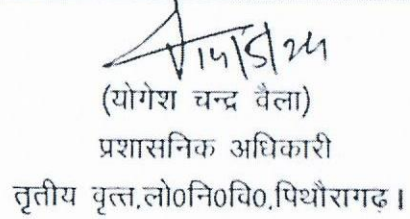 14/5/24
(योगेश चन्द्र वैला)
प्रशासनिक अधिकारी
तृतीय वृत्त,लो0नि0वि0,पिथौरागढ़।